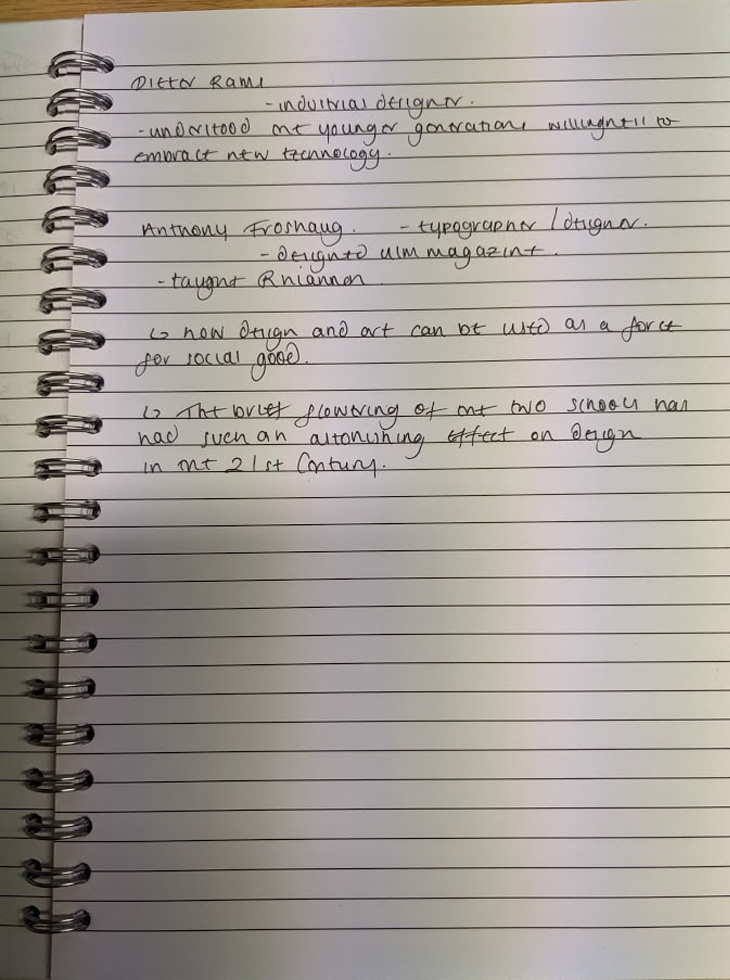 Dieter Rams
- industrial designer.
- understood the younger generations willingness to
embrace new technology.
Anthony Froshaug. - typographer / designer.
- designed ulm magazine.
- taught Rhiannon
↳ how design and art can be used as a force
for social good.
↳ The brief flowering of the two schools has
had such an astonishing effect on design
in the 21st Century.